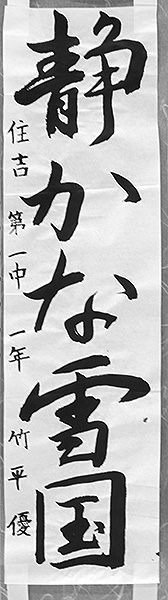 静かな雪国
住吉 第一中 一年 竹平優